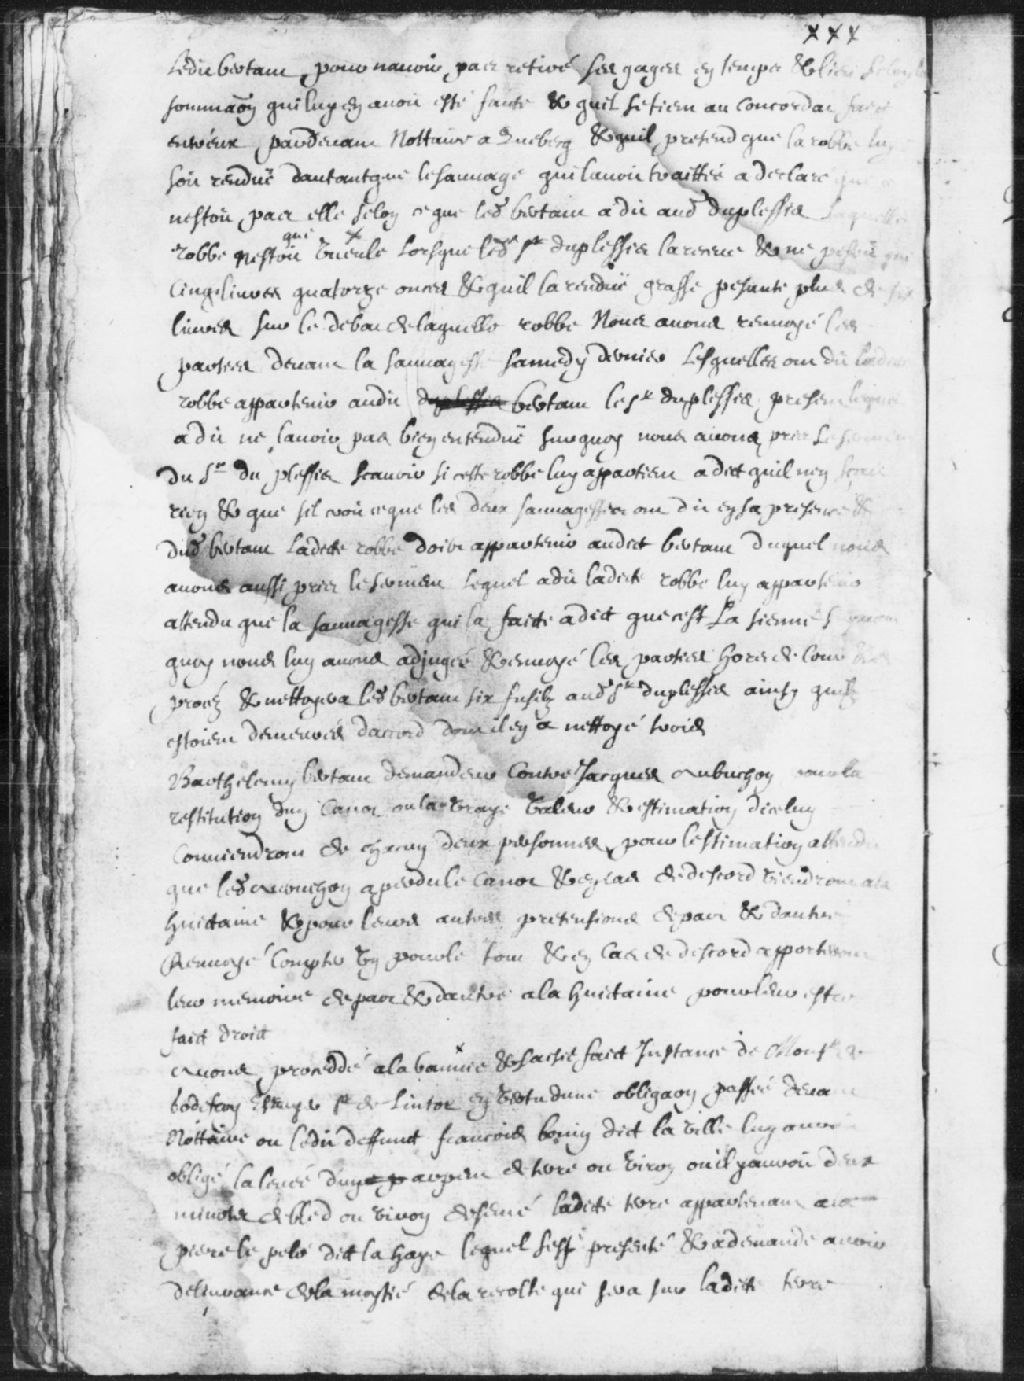 xxx
Ledit bertam pour navoir pas retiré ses gages en temps & lieu selon la
sommaōn qui luy en avoit esté faitte & quil se tient au concordat faict
entreux pardevant Nottaire a Quebecq & quil pretend que la robbe luy
soit rendue dautant que le sauvage qui lavoit traittée a declaré que ce
nestoit pas elle selon ce que led bertam a dit aud duplessis laquelle
robbe nestoit que lorsque led sr duplessis la receue & ne pesoit que
cinq livres quatorze onces & quil la rendüe grasse pesante plus de six
livres sur le debat de laquelle robbe Nous avons renvoyé les
parties devant la sauvagesse samedy dernier Lesquelles ont dit ladicte
robbe appartenir audit bertam le sr duplessis present lequel
a dit ne lavoir pas bien entendue surquoy nous avons pris le serment
du sr du plessis scavoir si cette robbe luy appartient a dict quil nen scait
rien & que sil croit ce que les deux sauvagesses ont dit en sa presence &
dud bertam Ladicte robbe doibt appartenir audict bertam duquel nous
avons aussi pris le serment Lequel a dit ladicte robbe luy appartenir
attendu que la sauvagesse qui la faitte a dict que cest La sienne
quoy nous luy avons adjugée & renvoyé les parties hors de cour &
procez & nettoyera led bertam six fusilz aud sr duplessis ainsy quilz
estoient demeurés daccord dont il en a nettoyé trois
Barthelemy bertam demandeur Contre Jacques Aubuchon pour la
restitution dun Canot ou la vraye valeur & estimation diceluy
Conviendront de chacun deux personnes pour lestimation attendu
que led Aubuchon a perdu le canot & en cas de discord viendront a la
huictaine & pour leurs autres pretensions de part & dautre
Renvoyé Compter par le tout & en cas de discord apporteront
leur memoire de part & dautre a la huictaine pour leur estre
faict droict
Avons proceddé a la bannie & saisie faict Instance de Monsr de
Godefroy sr de Lintot en vertu dune obligaōn passée devant
Nottaire ou ledit deffunct francois bonin dict la ville luy avoit
obligé la levée dun arpent de terre ou viron ou il y avoit deux
minots de bled ou viron de semé ladicte terre appartenant a
pierre le pelé dict la haye lequel sest presenté & a demandé avoir
delivrance de la moytié de la recolte qui sera sur ladicte terre